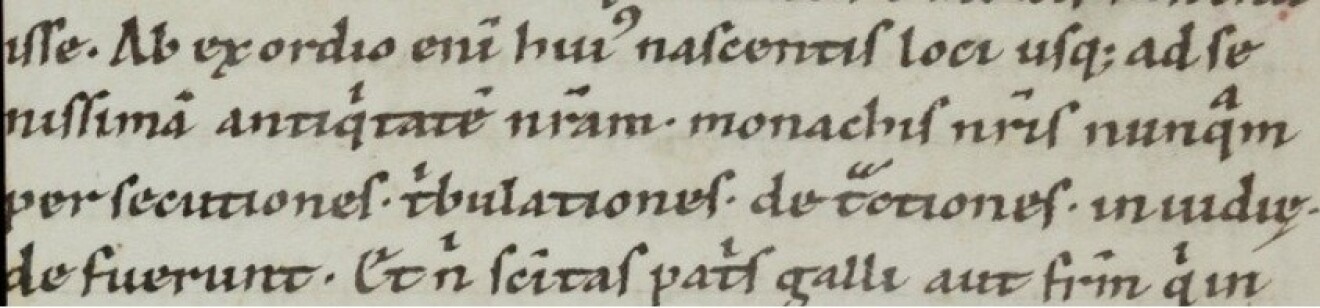 isse. Ab exordio eni̅ hui᾽ nascentis loci usq; ad se
nissimā antiqͥtatē nr̅am. monachis nr̅is nunqͣm
persecutiones. tͥbulationes. detͣctiones. inuidię.
defuerunt. Et nͥ sci̅tas patͥs galli aut fr̅m qͥ in